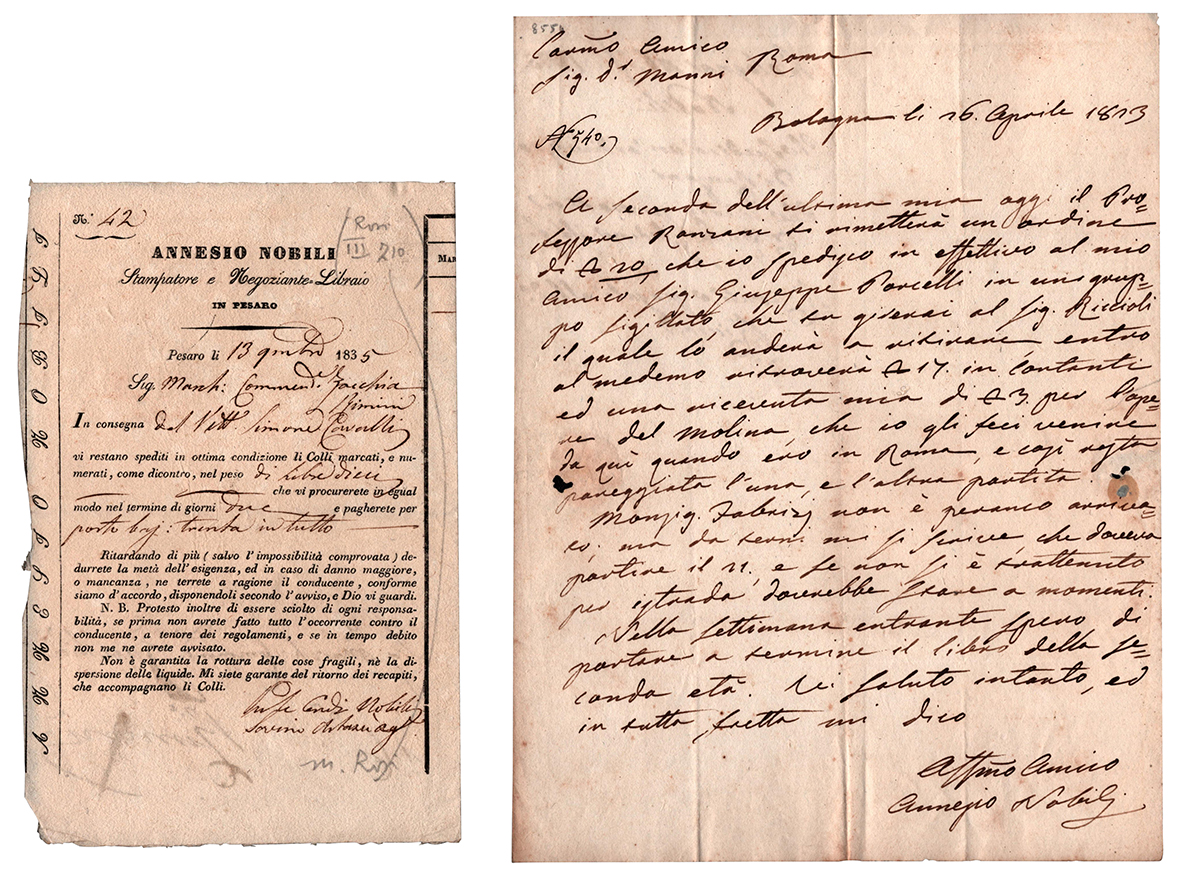 N.° 42
Rosi
III 210
ANNESIO NOBILI
Stampatore e Negoziante-Libraio
IN PESARO
MAR
Pesaro li 13 9mbre 1835
Sig. March: Commend.e
Rimini
In consegna del Vett. Simone Cavalli
vi restano spediti in ottima condizione li Colli marcati, e nu-
merati, come dicontro, nel peso di Libre dieci
che vi procurerete in egual
modo nel termine di giorni due e pagherete per
porto baj: trenta in tutto
Ritardando di più (salvo l'impossibilità comprovata) de-
durrete la metà dell'esigenza, ed in caso di danno maggiore,
o mancanza, ne terrete a ragione il conducente, conforme
siamo d'accordo, disponendoli secondo l'avviso, e Dio vi guardi.
N. B. Protesto inoltre di essere sciolto di ogni responsa-
bilità, se prima non avrete fatto tutto l'occorrente contro il
conducente, a tenore dei regolamenti, e se in tempo debito
non me ne avrete avvisato.
Non è garantita la rottura delle cose fragili, nè la di-
spersione delle liquide. Mi siete garante del ritorno dei recapiti,
che accompagnano li Colli.
Nobili
m. Rosi
ANNESIO NOBILI
855
Carmo Amico
Sig. Dr Manni Roma
Bologna li 26. Aprile 1823
N° 540.
A seconda dell'ultima mia oggi il Pro-
fessore Ranzani si rimetterà un ordine
di 20, che io spedisco in effettivo al mio
Amico Sig. Giuseppe Porcelli in un grup-
po sigillato, che fa girerai al Sig. Riccioli
il quale lo anderà a ritirare, entro
al medemo ritroverà 17. in Contanti
ed una ricevuta mia di 3. per l'ope-
re del Molina, che io gli feci venire
da quì quando ero in Roma, e così resta
pareggiata l'una, e l'altra partita.
Monsig. Fabrizj non è peranco arriva-
to: ma da mi si scrive che doveva
partire il 21. e se non si è trattenuto
per istrada dovrebbe stare a momenti.
Nella settimana entrante spero di
portare a termine il libro della se-
conda età. Vi saluto intanto, ed
in tutta fretta mi dico
Affmo Amico
Annesio Nobilj